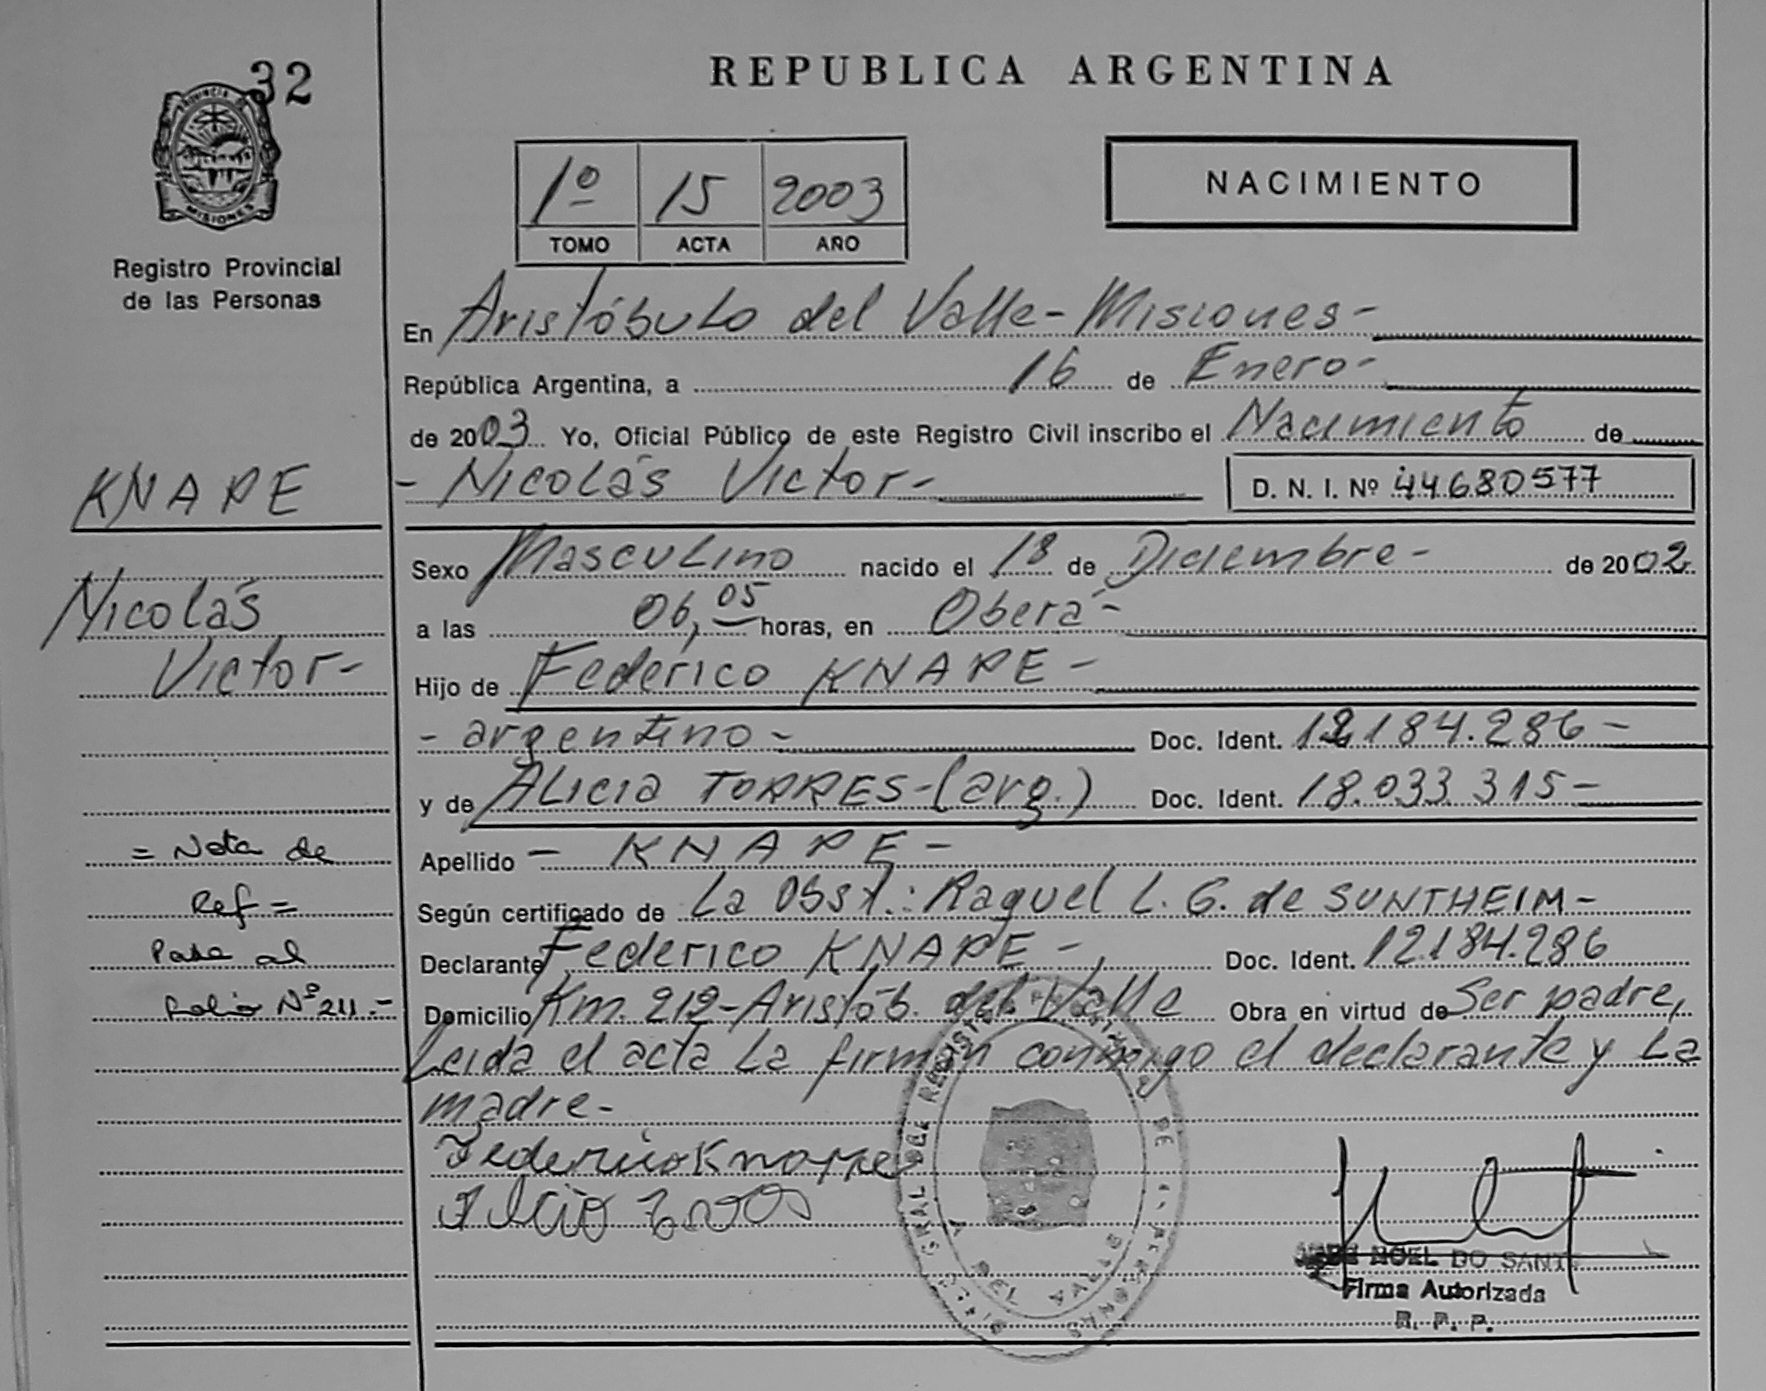 32
PROVINCIA DE
MISIONES
Registro Provincial
de las Personas
REPUBLICA ARGENTINA
1º 15 2003
TOMO ACTA AÑO
NACIMIENTO
En Aristóbulo del Valle-Misiones-
República Argentina, a 16 de Enero-
de 2003 Yo, Oficial Público de este Registro Civil inscribo el Nacimiento de
KNAPE
- Nicolás Victor-
D. N. I. Nº 44.680.577
Sexo Masculino nacido el 18 de Diciembre- de 2002
Nicolás
Victor-
a las 06,05 horas, en Oberá-
Hijo de Federico KNAPE-
- argentino- Doc. Ident. 12.184.286-
y de Alicia TORRES-(arg.) Doc. Ident. 18.033.315-
= Nota de
Ref =
Pasa al
folio Nº 211.-
Apellido - KNAPE-
Según certificado de La Obst.: Raquel L. G. de SUNTHEIM-
Declarante Federico KNAPE-, Doc. Ident. 12.184.286
Domicilio Km. 212-Aristób. del Valle Obra en virtud de Ser padre,
Leida el acta La firman conmigo el declarante y La
madre-
Federico Knappe
NOEL DO SANT
Firma Autorizada
R. P. P.